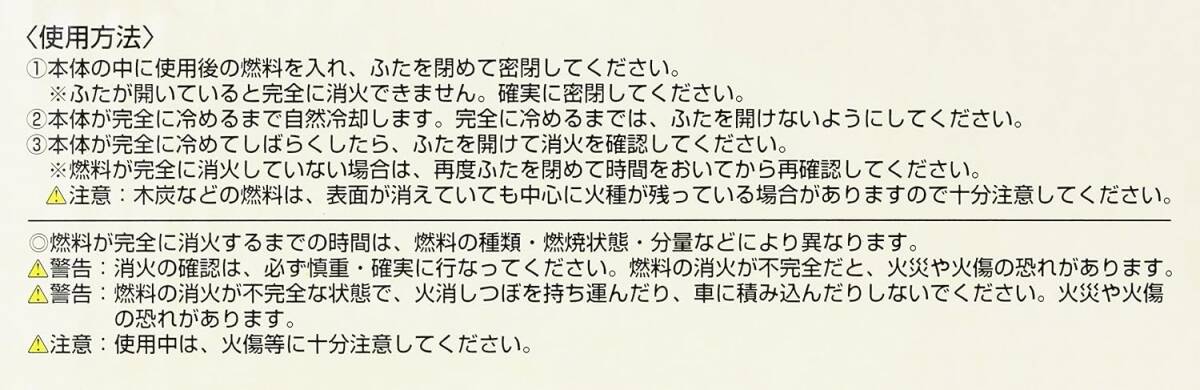 〈使用方法〉
①本体の中に使用後の燃料を入れ、ふたを閉めて密閉してください。
※ふたが開いていると完全に消火できません。確実に密閉してください。
②本体が完全に冷めるまで自然冷却します。完全に冷めるまでは、ふたを開けないようにしてください。
③本体が完全に冷めてしばらくしたら、ふたを開けて消火を確認してください。
※燃料が完全に消火していない場合は、再度ふたを閉めて時間をおいてから再確認してください。
⚠注意：木炭などの燃料は、表面が消えていても中心に火種が残っている場合がありますので十分注意してください。
◎燃料が完全に消火するまでの時間は、燃料の種類・燃焼状態・分量などにより異なります。
⚠警告：消火の確認は、必ず慎重・確実に行なってください。燃料の消火が不完全だと、火災や火傷の恐れがあります。
⚠警告：燃料の消火が不完全な状態で、火消しつぼを持ち運んだり、車に積み込んだりしないでください。火災や火傷
の恐れがあります。
⚠注意：使用中は、火傷等に十分注意してください。